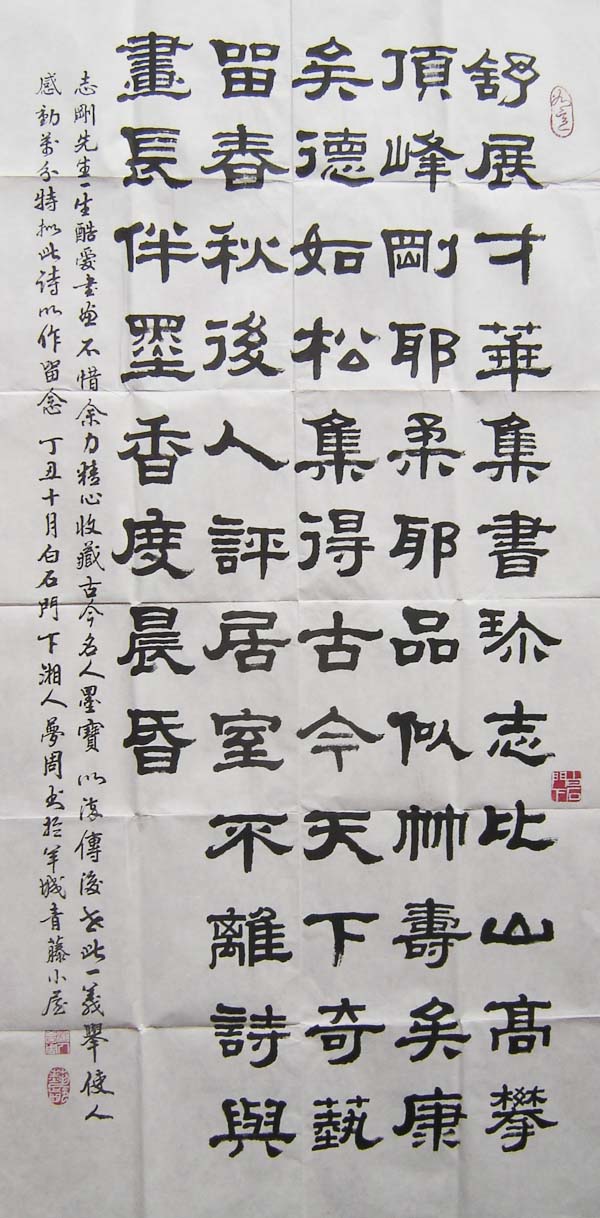 舒展才華集書珎志比山高攀
頂峰剛耶柔耶品似竹壽矣康
矣德如松集得古今天下奇藝
留春秋後人評居室不離詩與
畫長伴墨香度晨昏
志剛先生一生酷愛書畫不惜余力精心收藏古今名人墨寶以後傳後世此一義舉使人
感動萬分特拟此詩以作留念 丁丑十月白石門下湘人夢周书於羊城青藤小屋
白石門下